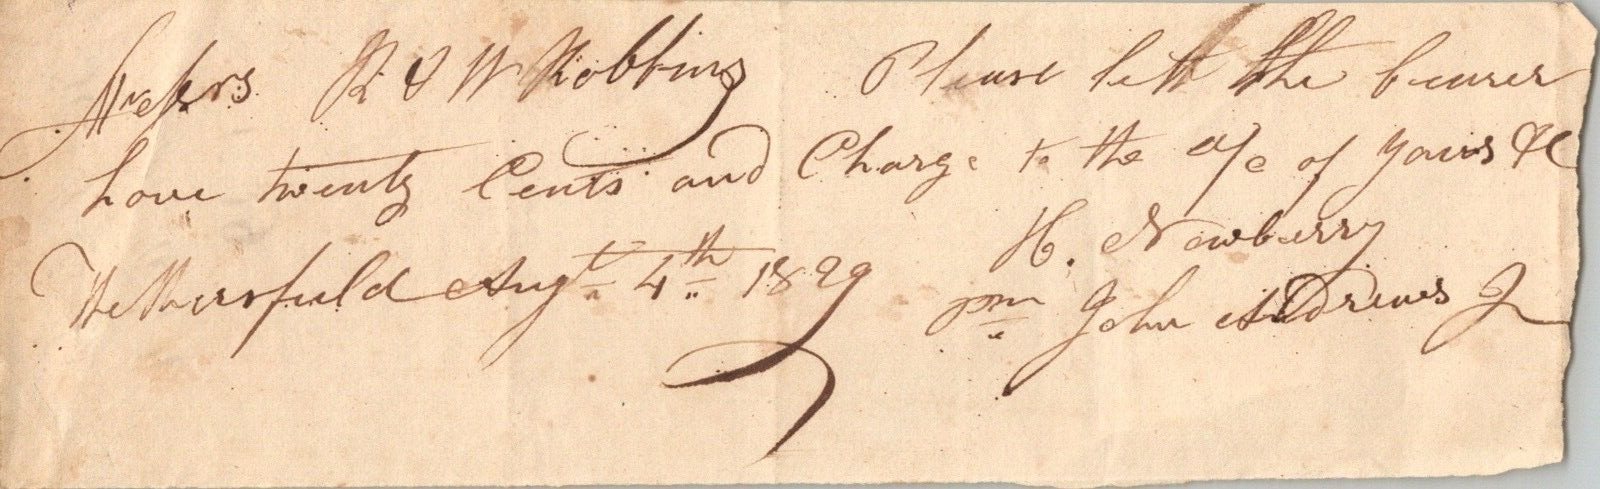 Messrs R & W Robbins Please lett the bearer
have twenty Cents and Charge to the a/c of yours &c
H. Newberry
Wethersfield Augt 4th 1829 pr John Andrews Jr